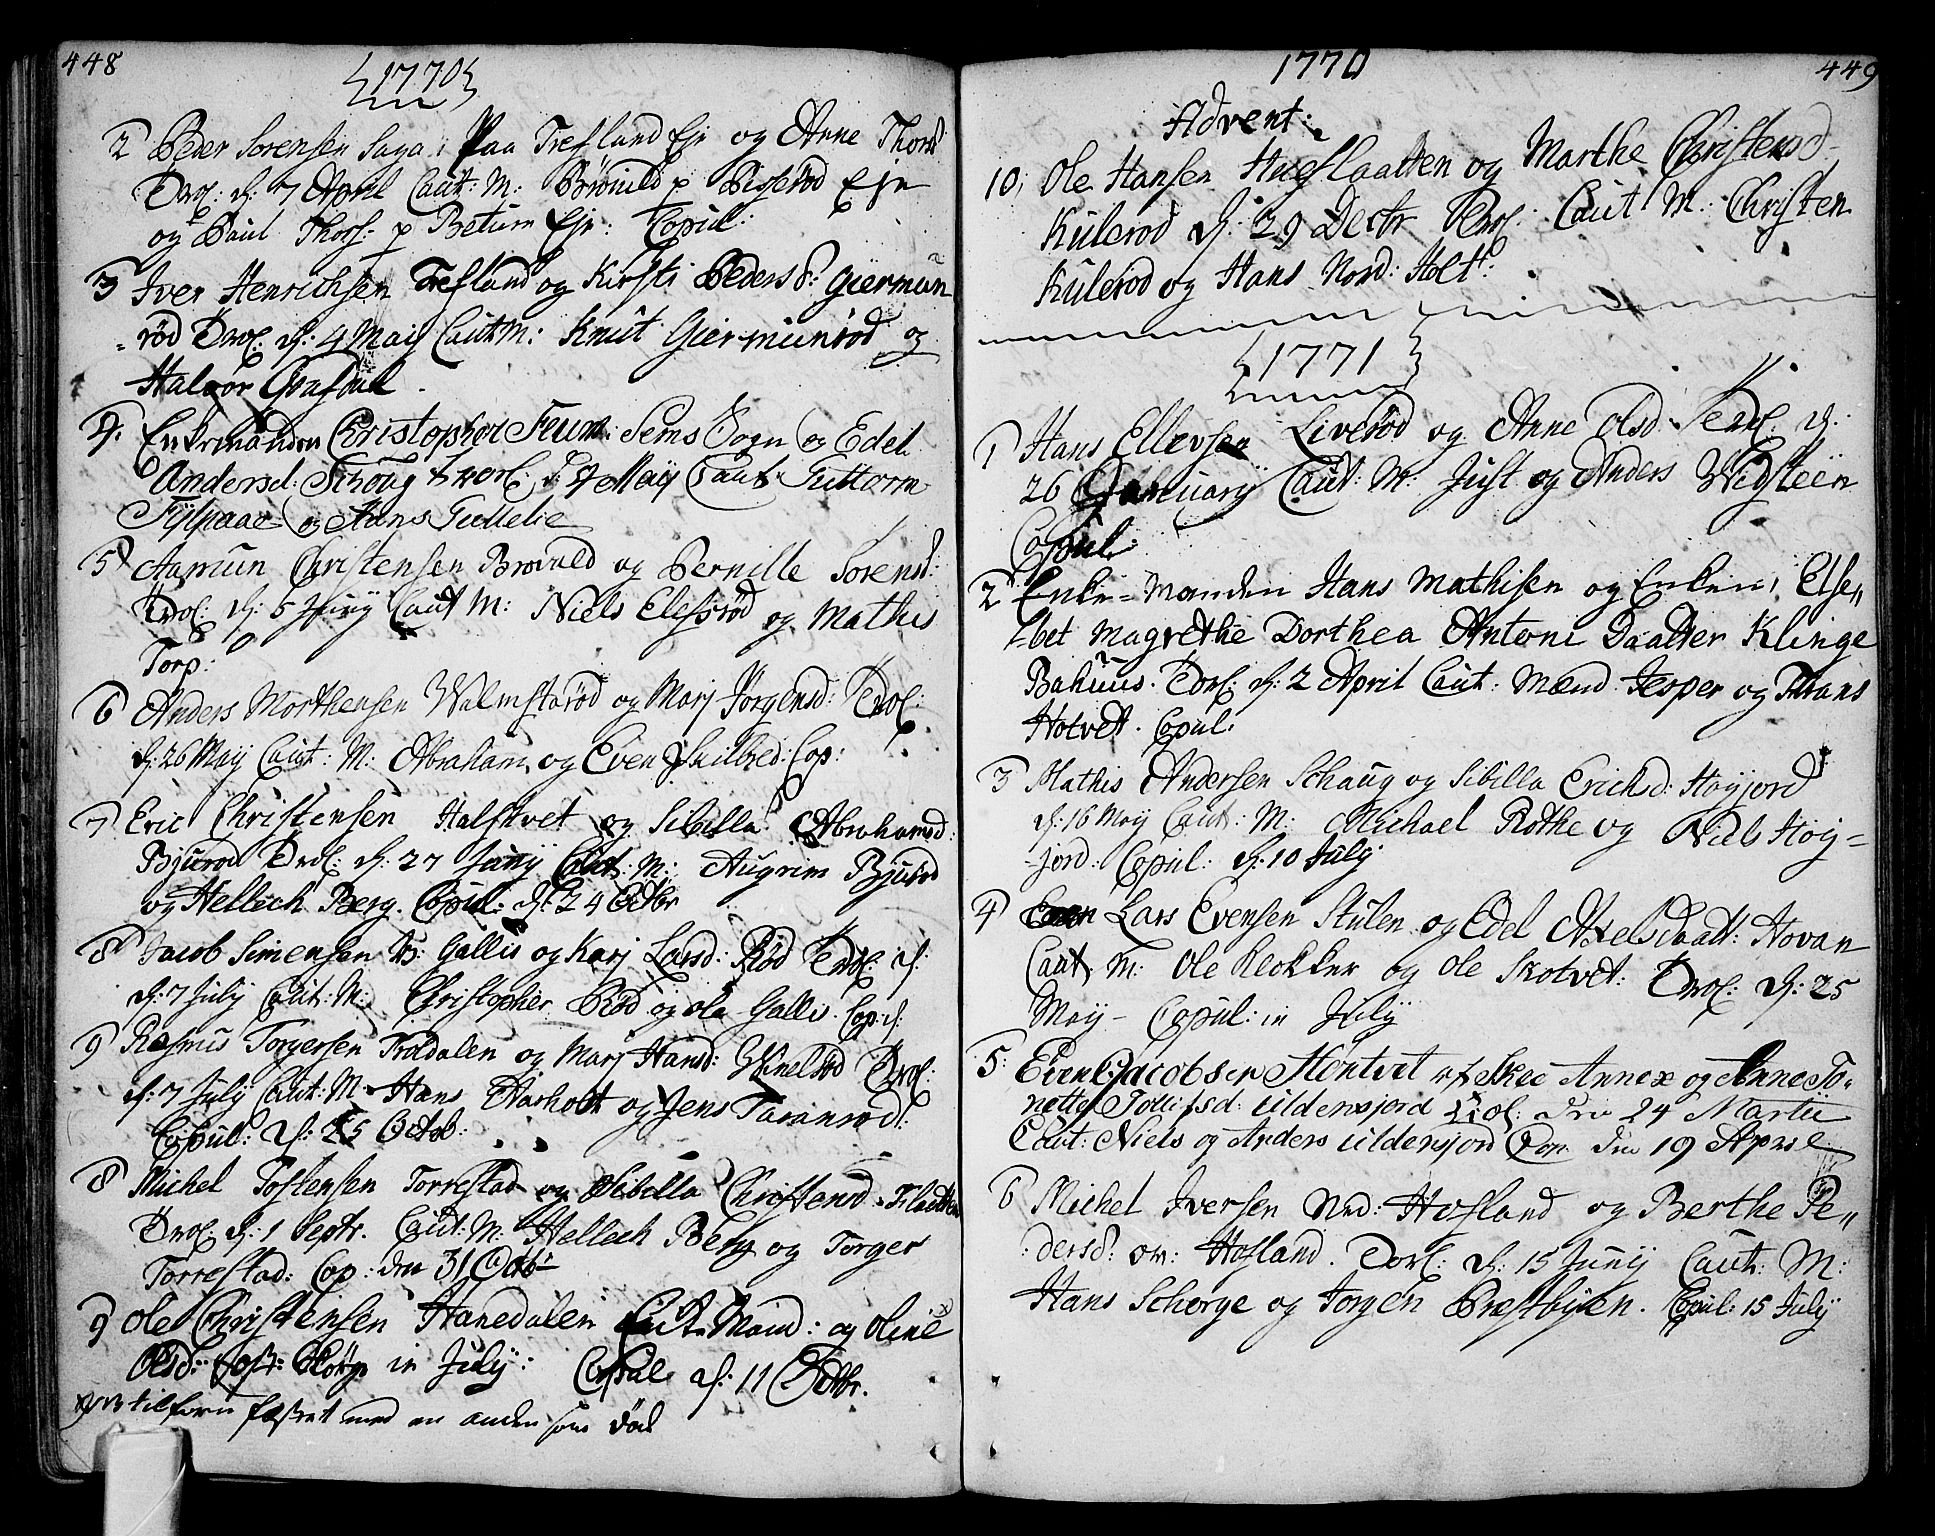 448
1770
2 Peder Sorensen Saga: Paa Trefland Eje og Anne Thorsd
Trol: d: 7 April Caut: M: Brovild p Bisserød Eje
og Paul Thors: p Betum Eje: Copul:
3 Iver Henrichsen Trefland og Kirsti Pedersd: Giermun
-rød Trol: d: 4 Maij Caut M: Knut Giermunrød og
Halvor
4. Enkemanden Christopher Feum: Sems Sogn og Edel
Andersd: Schoug Trol: d: Maij Caut: Guttorm
og Hans Gullelie
5 Aamun Christensen Brovald og Pernille Sorensd:
Trol: d: 5 Junij Caut M: Niels Elefsrød og Mathis
Torp:
6 Anders Morthensen Walmestarød og Marj Jørgensd: Trol:
d: 26 Maij Caut: M: Abraham og Even Cop:
7 Eric Christensen Halshvet og Sibilla Abrahamsd:
Bjurod Trol: d: 27 Junij Caut: M: Augrim Bjurød
og Hellech Berg. Copul: d: 24 Octbr
8 Jacob Simensen Gallis og Karj Larsd: Rød Trol: d:
d: 7 July Caut: M: Christopher Rød og Ola Gallis. Cop: d:
9 Rasmus Torgersen Troldalen og Marj Hansd: Winelrød Trol:
d: 7 July Caut: M: Hans Aasholt og Jens Taranrød:
Copul: d: 25 Octob:
8 Michel Tostensen Torrestad og Sibilla Christensd: Flaatten
Trol: d: 1 Septr. Caut: M: Hellech Berg og Torger
Torrestad: Cop: den 31 Octbr
9 Ole Christensen Hanedalen Mand: og Oline
Olsd: in July: Copul d: 11 Octbr.
tilforn fæstet med en anden som død
1770 449
Advent:
10; Ole Hansen Hugslaatten og Marthe Christensd
Kulerød d: 29 Decbr Trol: Caut M: Christen
Kulerød og Hans Nord: Holt:
1771
1 Hans Ellevsen Liverød og Anne Olsd Trol: d:
26 Januarij Caut: M: Just og Anders Widsteen
Copul:
2 Enke=Manden Hans Mathisen og Enken, Else„
-bet Magrethe Dorthea Antoni Daatter Klinge
Bahuus. Trol: d: 2 April Caut: Mænd Jesper og Frans
Holvet. Copul:
3 Mathis Andersen Schaug og Sibilla Ericksd: Høyjord
d: 16 Maij Caut: M: Michael Rothe og Niels Høy=
-jord: Copul: d: 10 July
4 Lars Evensen Stulen og Edel Axelsdaatt: Hovan
Caut M: Ole Klokker og Ole Skotvet: Trol: d: 25
Maij - Copul: in July
5: Even Jacobsen Hontvet af Skee Annex og Anne To-
nette Tollifsd: Uldensjord Trol: den 24 Martii
Caut: Niels og Anders Uldensjord Cop: den 19 Aprile
6 Michel Iversen Ned: Hofland og Berthe Pe„
dersd: ov: Hofland. Trol: d: 15 Junij Caut: M:
Hans Schorge og Jorgen Prestbyen. Copul: 15 July